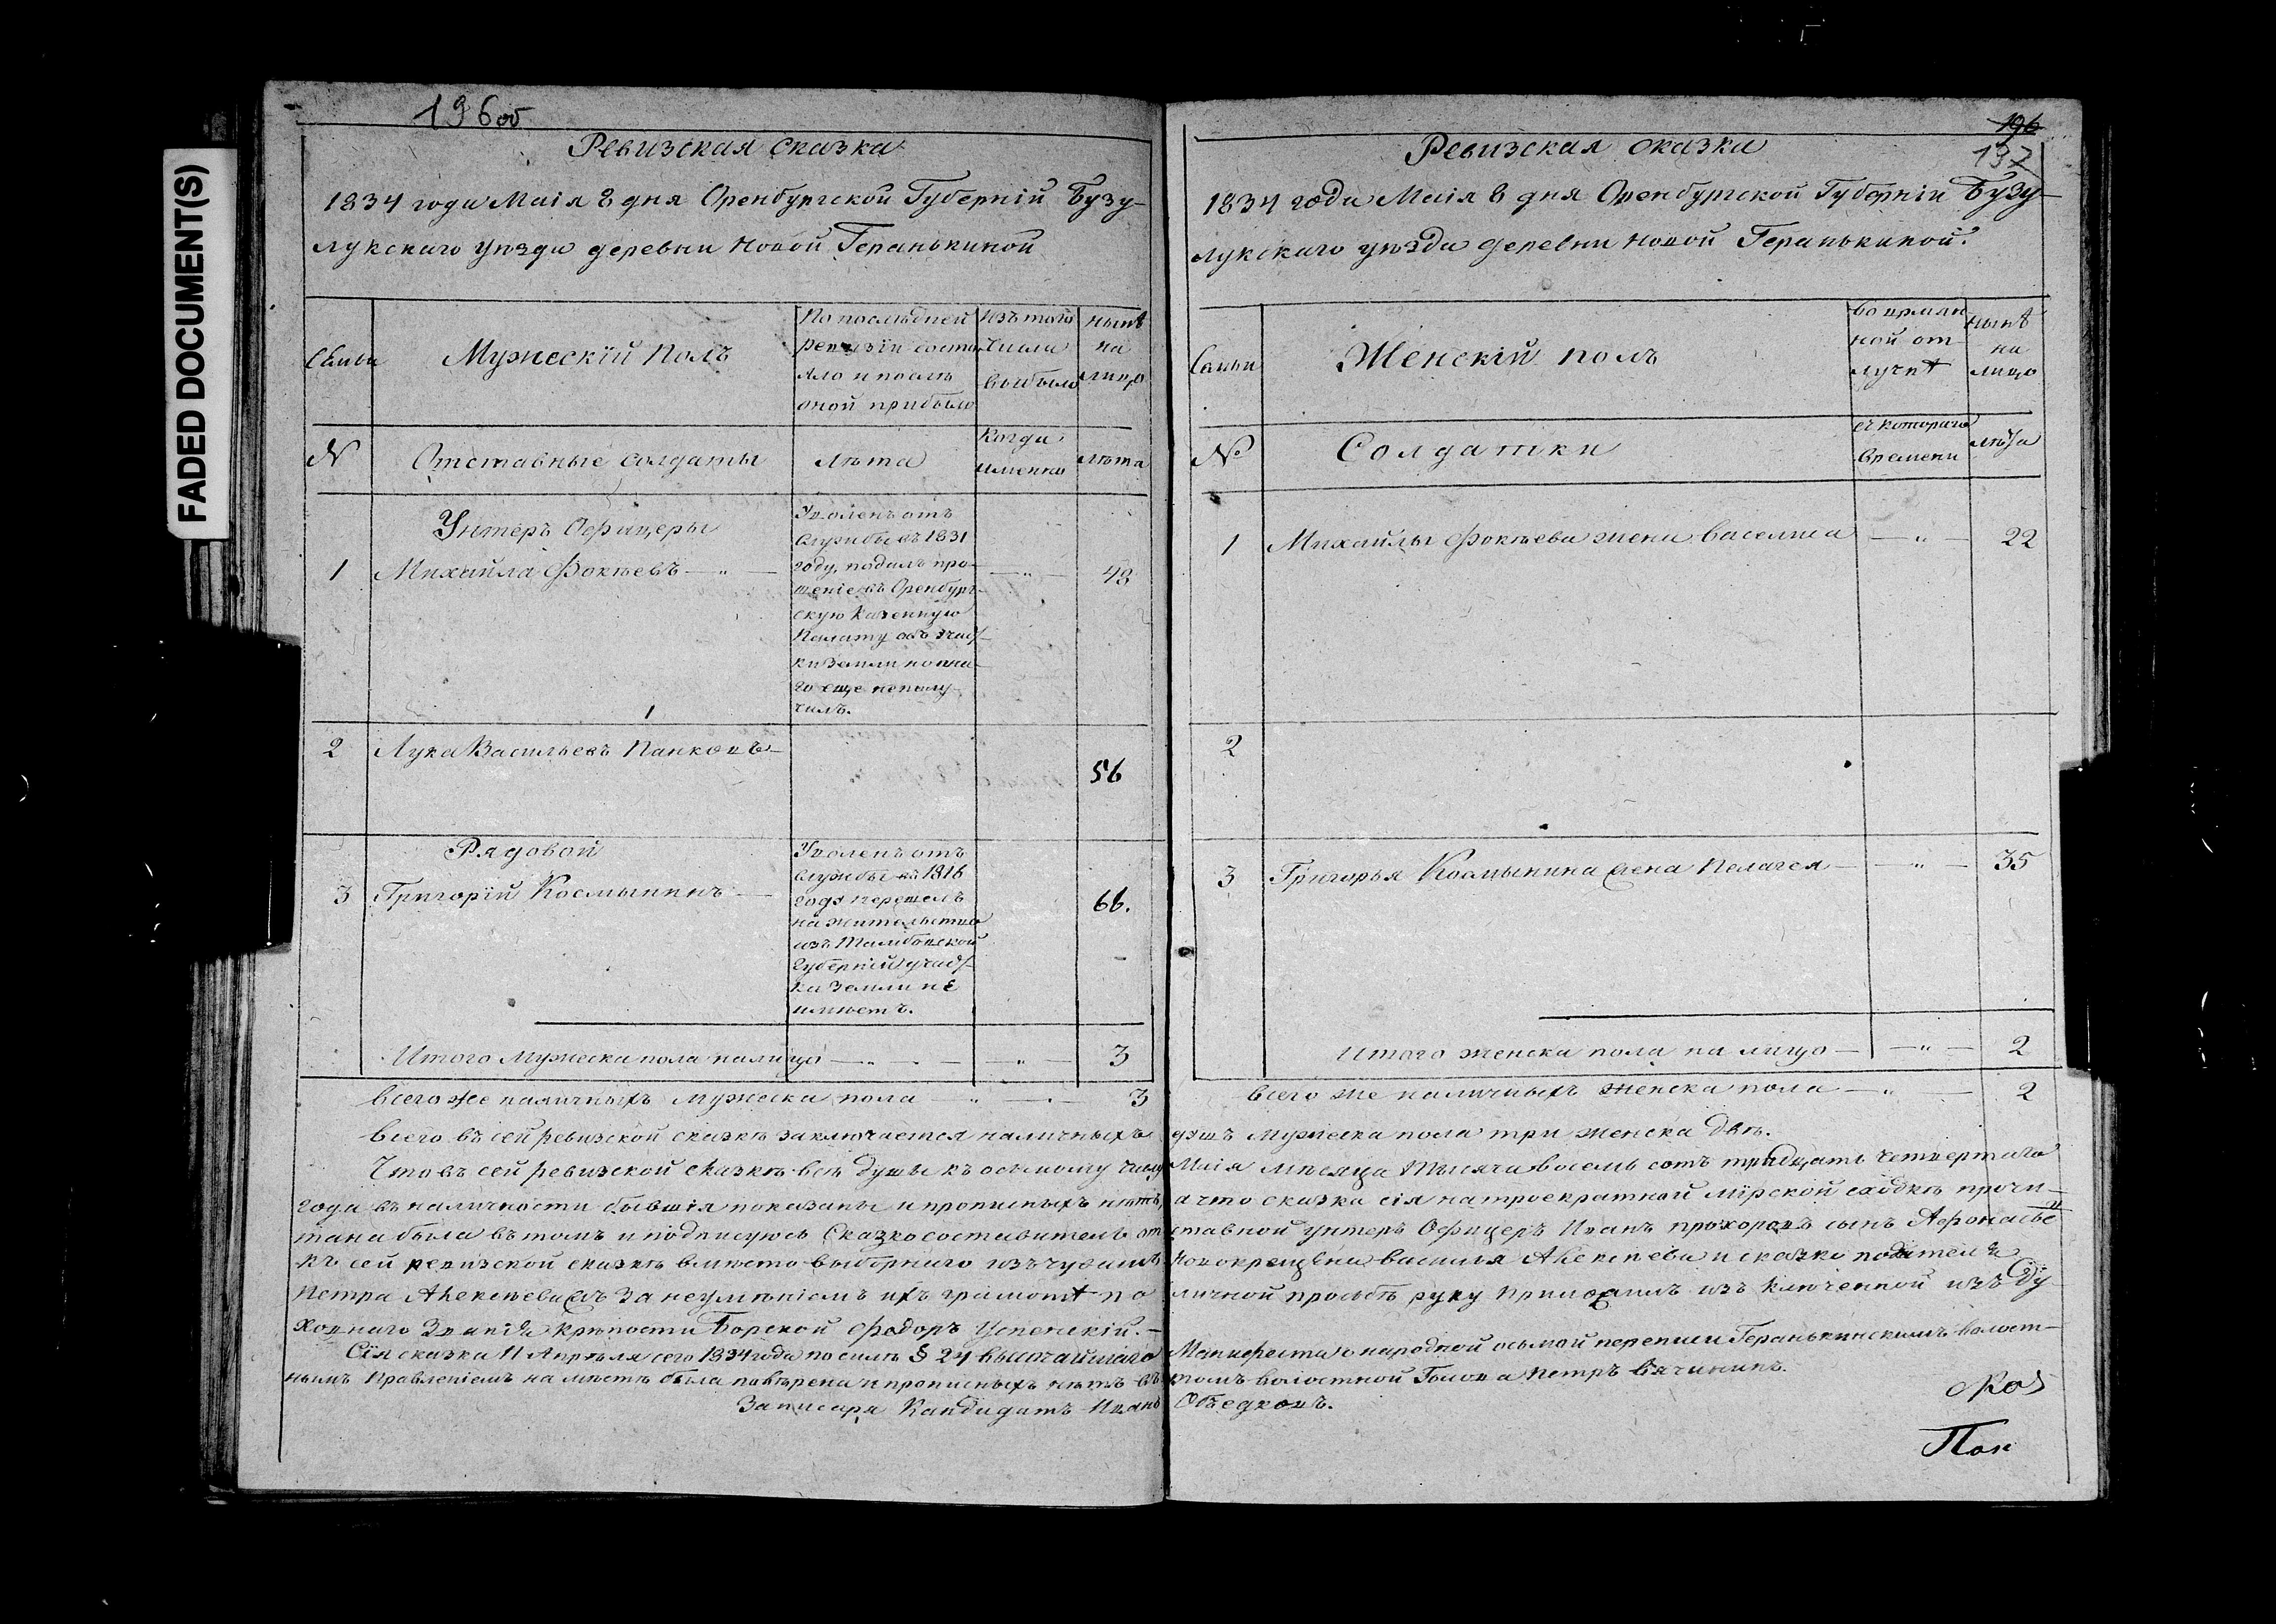 FADED DOCUMENT(S)
196об
Ревизская сказка
1834 года Маія 8 дня Оренбургской Губерніи Бузу-
лукскаго уѣзда деревни Новой Геранькиной
Семьи
Мужескій Полъ
По последней
ревизіи состо
яло и послѣ
оной прибыло
Изъ того
числа
выбыло
Нынѣ
на
лицо
№
Отставные солдаты
Лѣта
Когда
именно
лѣта
Унтеръ Офицеры
1 Михайла Фокѣевъ — „ —
Уволенъ отъ
службы въ 1831
году, подалъ про-
шеніе въ Оренбург-
скую Казенную
Палату объ участ-
ки земли но она-
го еще неполу-
чилъ.
— „ —
48
1
2 Лука Васильевъ Панковъ —
56
Рядовой
3 Григорій Космынинъ —
Уволенъ отъ
службы въ 1816
года перешелъ
на жительство
изъ Тамбовской
Губерніи участ-
ка земли не
имѣетъ.
66.
Итого Мужеска пола налицо — „ — „ — 3
всего же наличныхъ мужеска пола — „ — 3
Ревизская сказка
196
197
1834 года Маія 8 дня Оренбургской Губерніи Бузу-
лукскаго уѣзда деревни Новой Геранькиной.
Семьи
Женскій полъ
Во времян
ной от-
лучкѣ
Нынѣ
на
лицо
№
Солдатки
съ котораго
времени
лѣта
1 Михайлы Фокѣева жена Васелиса — „ — 22
2
3 Григорья Космынина жена Пелагея — „ — 35
Итого женска пола на лицо — „ — 2
всего же наличныхъ женска пола — „ — 2
Всего въ сей ревизской сказкѣ заключается наличныхъ душъ мужеска пола три женска двѣ.
Что въ сей ревизской сказкѣ всѣ души къ осьмому числу Маія мѣсяца тысяча восемь сотъ тридцать четвертаго
года въ наличности бывшія показаны и прописныхъ нѣтъ, а что сказка сія натроекратной мірской сходкѣ прочи-
тана была въ томъ и подписуюсь Сказкосоставитель отставной унтеръ Офицеръ Иванъ Прохоровъ сынъ Афонасье
къ сей ревизской сказкѣ вмѣсто выборнаго изъ чувашъ Новокрещена василья Алексѣева и сказко подателя
Петра Алексѣева за неумѣніемъ ихъ грамотѣ по личной прозьбѣ руку приложилъ изъ Ключенной изъ Ду
ховнаго званія крѣпости Борской Фѣдоръ Успенскій. —
Сія сказка 11 Апрѣля сего 1834 года по силѣ § 24 высочайшаго Манифеста о народной осьмой переписи Геранькинскимъ волост-
нымъ Правленіемъ на мѣстѣ была повѣрена и прописныхъ нѣтъ въ томъ волостной Голова Петръ
За писаря Кандидатъ Иванъ Объедковъ.
Пол